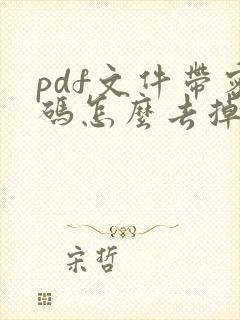 pdf文件带密
码怎麼去掉
宋哲